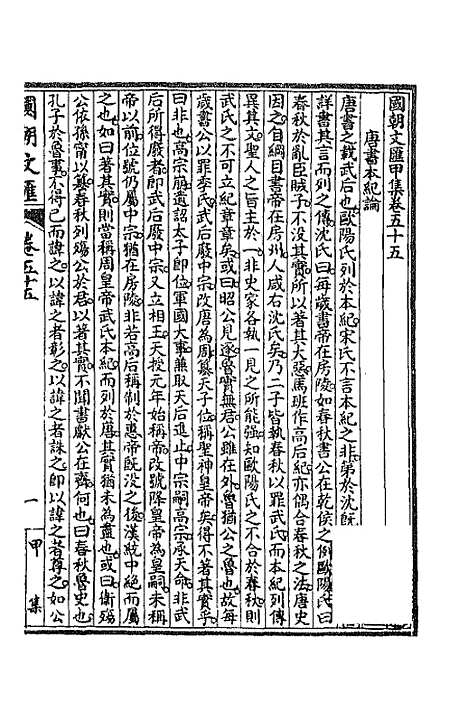 國朝文匯甲集卷五十五
唐書本紀論
唐書之載武后也歐陽氏列於本紀宋氏不言本紀之非第於沈旣
詳書其言而列之傳沈氏曰每歲書帝在房陵如春秋書公在乾侯之例歐陽氏曰
春秋於亂臣賊子不沒其實所以著其大惡馬班作高后紀亦偶合春秋之法唐史
因之自綱目書帝在房州人咸右沈氏矣乃二子皆執春秋以罪武氏而本紀列傳
異其文聖人之旨主於一非史家各執一見之所能強知歐陽氏之不合於春秋則
武氏之不可立紀章章矣或曰昭公見逐魯實無君公雖在外魯猶公之魯也故每
歲書公以罪季氏武后廢中宗改唐為周篡天子位稱聖神皇帝矣得不著其實乎
曰非也高宗崩遺詔太子卽位軍國大事兼取天后進止中宗嗣高宗承天命非武
后所得廢者卽武后廢中宗又立相王天授元年始稱帝改號降皇帝為皇嗣未稱
帝以前位號仍屬中宗猶在房陵非若高后稱制於惠帝旣沒之後漢統中絕而屬
之也如曰著其實則當稱周皇帝武氏本紀而列於唐其實猶未為盡也或曰衛殤
公依孫甯以簒春秋列殤公於君以著其實不聞書獻公在齊何也曰春秋魯史也
孔子於魯事不得已而諱之以諱之者彰之以諱之者誅之卽以諱之者尊之如公
國朝文匯
卷五十五
一
甲集